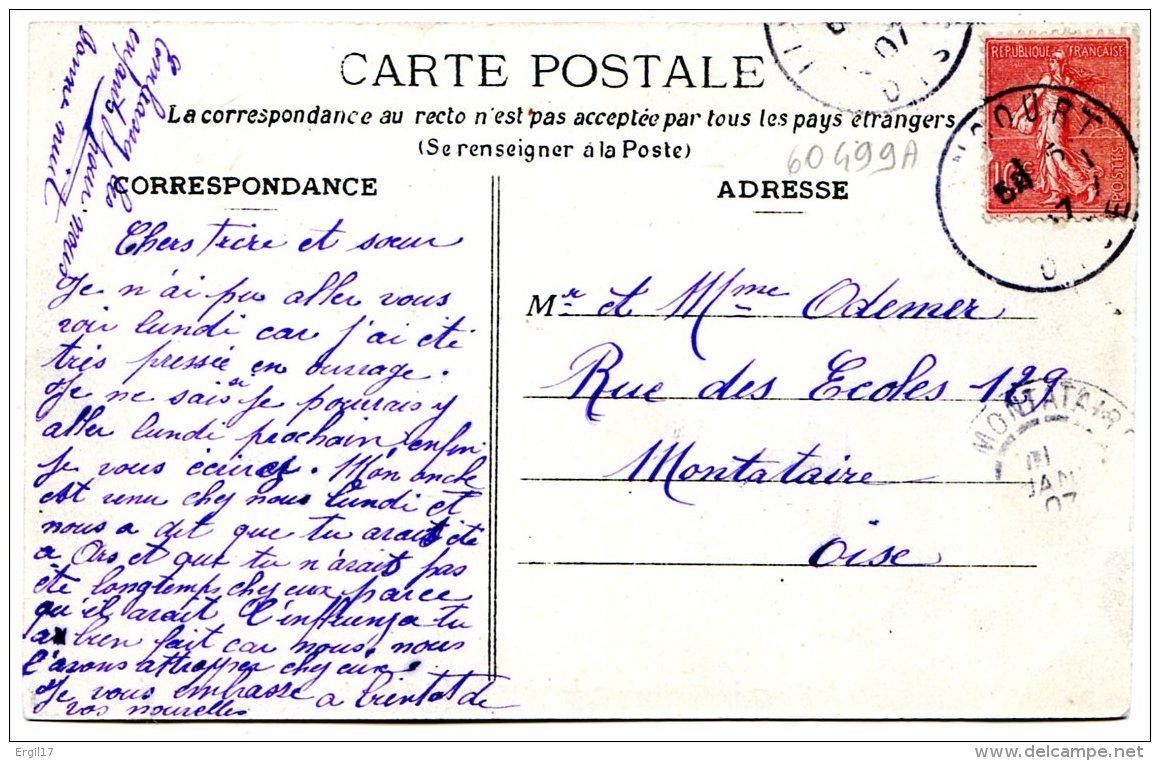 CARTE POSTALE
La correspondance au recto n'est pas acceptée par tous les pays étrangers
(Se renseigner à la Poste)
REPUBLIQUE FRANÇAISE
POSTES
10c
COURT
OISE
07
60499A
les
enfants pour nous
bonne nuit
CORRESPONDANCE
ADRESSE
Chers frère et sœur
Je n'ai pu aller vous
voir lundi car j'ai été
très pressée en ouvrage.
Je ne sais si je pourrais y
aller lundi prochain enfin
je vous écrirai. Mon oncle
est venu chez nous lundi et
nous a dit que tu avait été
a Ars et que tu n'avait pas
été longtemps chez eux parce
qu'il avait l'influenza tu
a bien fait car nous, nous
l'avons attrapper chez eux.
Je vous embrasse a bientot de
vos nouvelles
Mr et Mme Odemer
Rue des Ecoles 129
Montataire
Oise
MONTATAIRE
JAN
07
Ergil17
www.delcampe.net